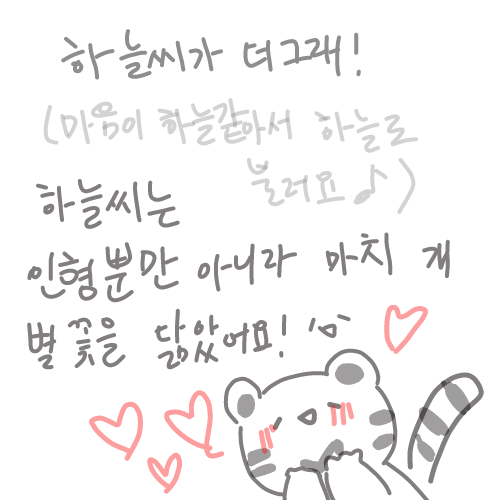 하늘씨가 더그래!
(마음이 하늘같아서 하늘로
불러요♪)
하늘씨는
인형뿐만 아니라 마치 개
별꽃을 닮았어요!